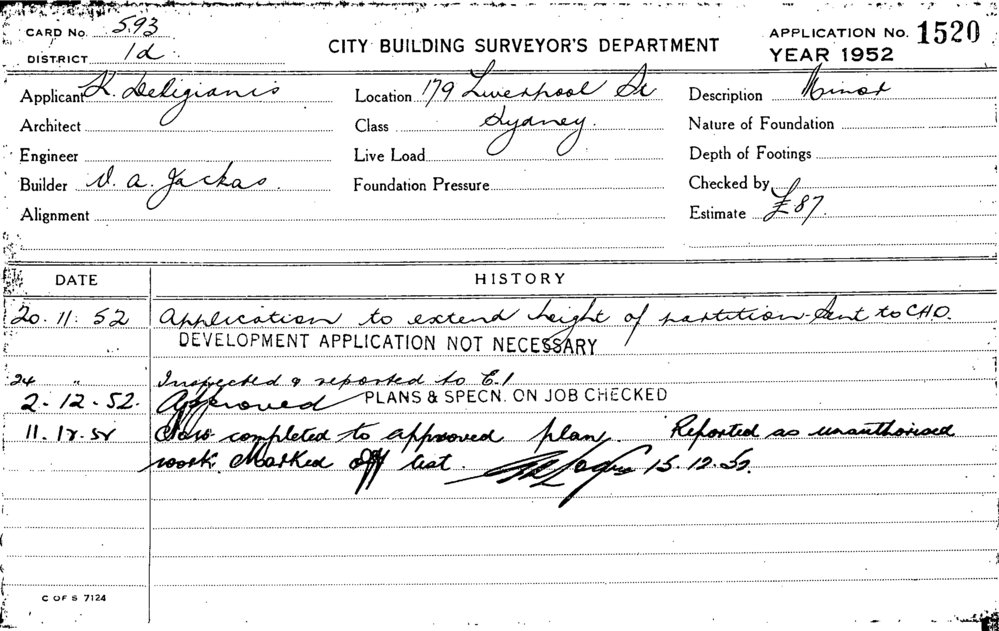 CARD No. 593
DISTRICT 1d
CITY BUILDING SURVEYOR'S DEPARTMENT
APPLICATION No. 1520
YEAR 1952
Applicant K. Deligianis
Location 179 Liverpool St
Description Minor
Architect
Class Sydney.
Nature of Foundation
Engineer
Live Load
Depth of Footings
Builder V. A. Jackas.
Foundation Pressure
Checked by
Alignment
Estimate £87.
DATE HISTORY
20. 11. 52 Application to extend height of partition - Sent to CHO.
DEVELOPMENT APPLICATION NOT NECESSARY
24 " Inspected & reported to E.1
2. 12. 52. Approved PLANS & SPECN. ON JOB CHECKED
11. 12. 52 Now completed to approved plan. Reported as unauthorised
work. Marked off list. 15. 12. 52.
C OF S 7124